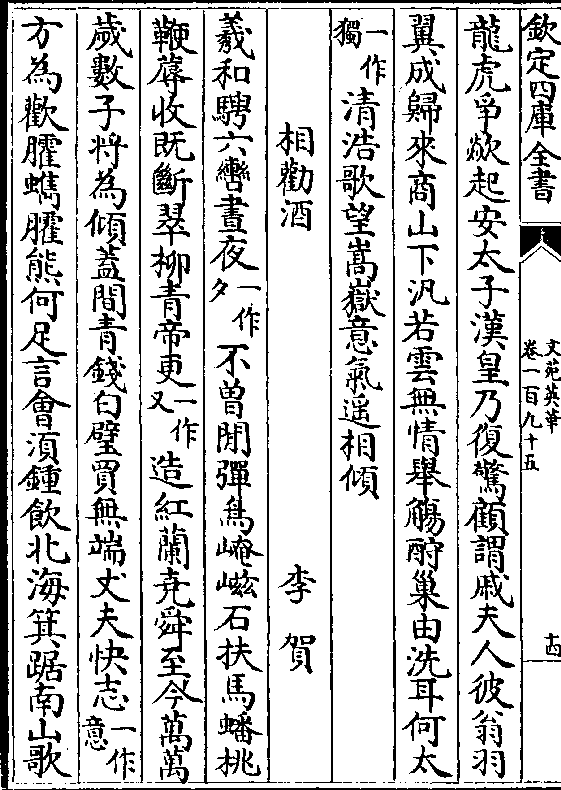 欽定四庫全書
文苑英華
卷一百九十五
十四
龍虎爭欻起安太子漢皇乃復驚顧謂戚夫人彼翁羽
翼成歸來商山下汎若雲無情舉觴酹巢由洗耳何太
一作獨清浩歌望嵩嶽意氣遥相傾
相勸酒 李賀
羲和騁六轡晝夜一作夕不曽閒彈烏崦嵫石扶馬蟠桃
鞭蓐收既斷翠柳青帝更一作又造紅蘭堯舜至今萬萬
歲數子將為傾葢間青錢白璧買無端丈夫快志一作意
方為歡臛蠵臛熊何足言會湏鍾飲北海箕踞南山歌